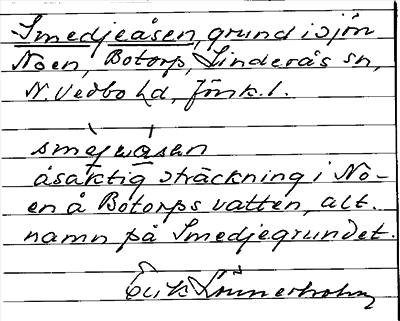 Smedjeåsen, grund i sjön
Noen, Botorp, Linderås sn,
N. Vedbo hd, Jönk. l.
smèjwásen
åsaktig sträckning i No-
en å Botorps vatten, alt.
namn på Smedjegrundet.
Erik Linnerholm